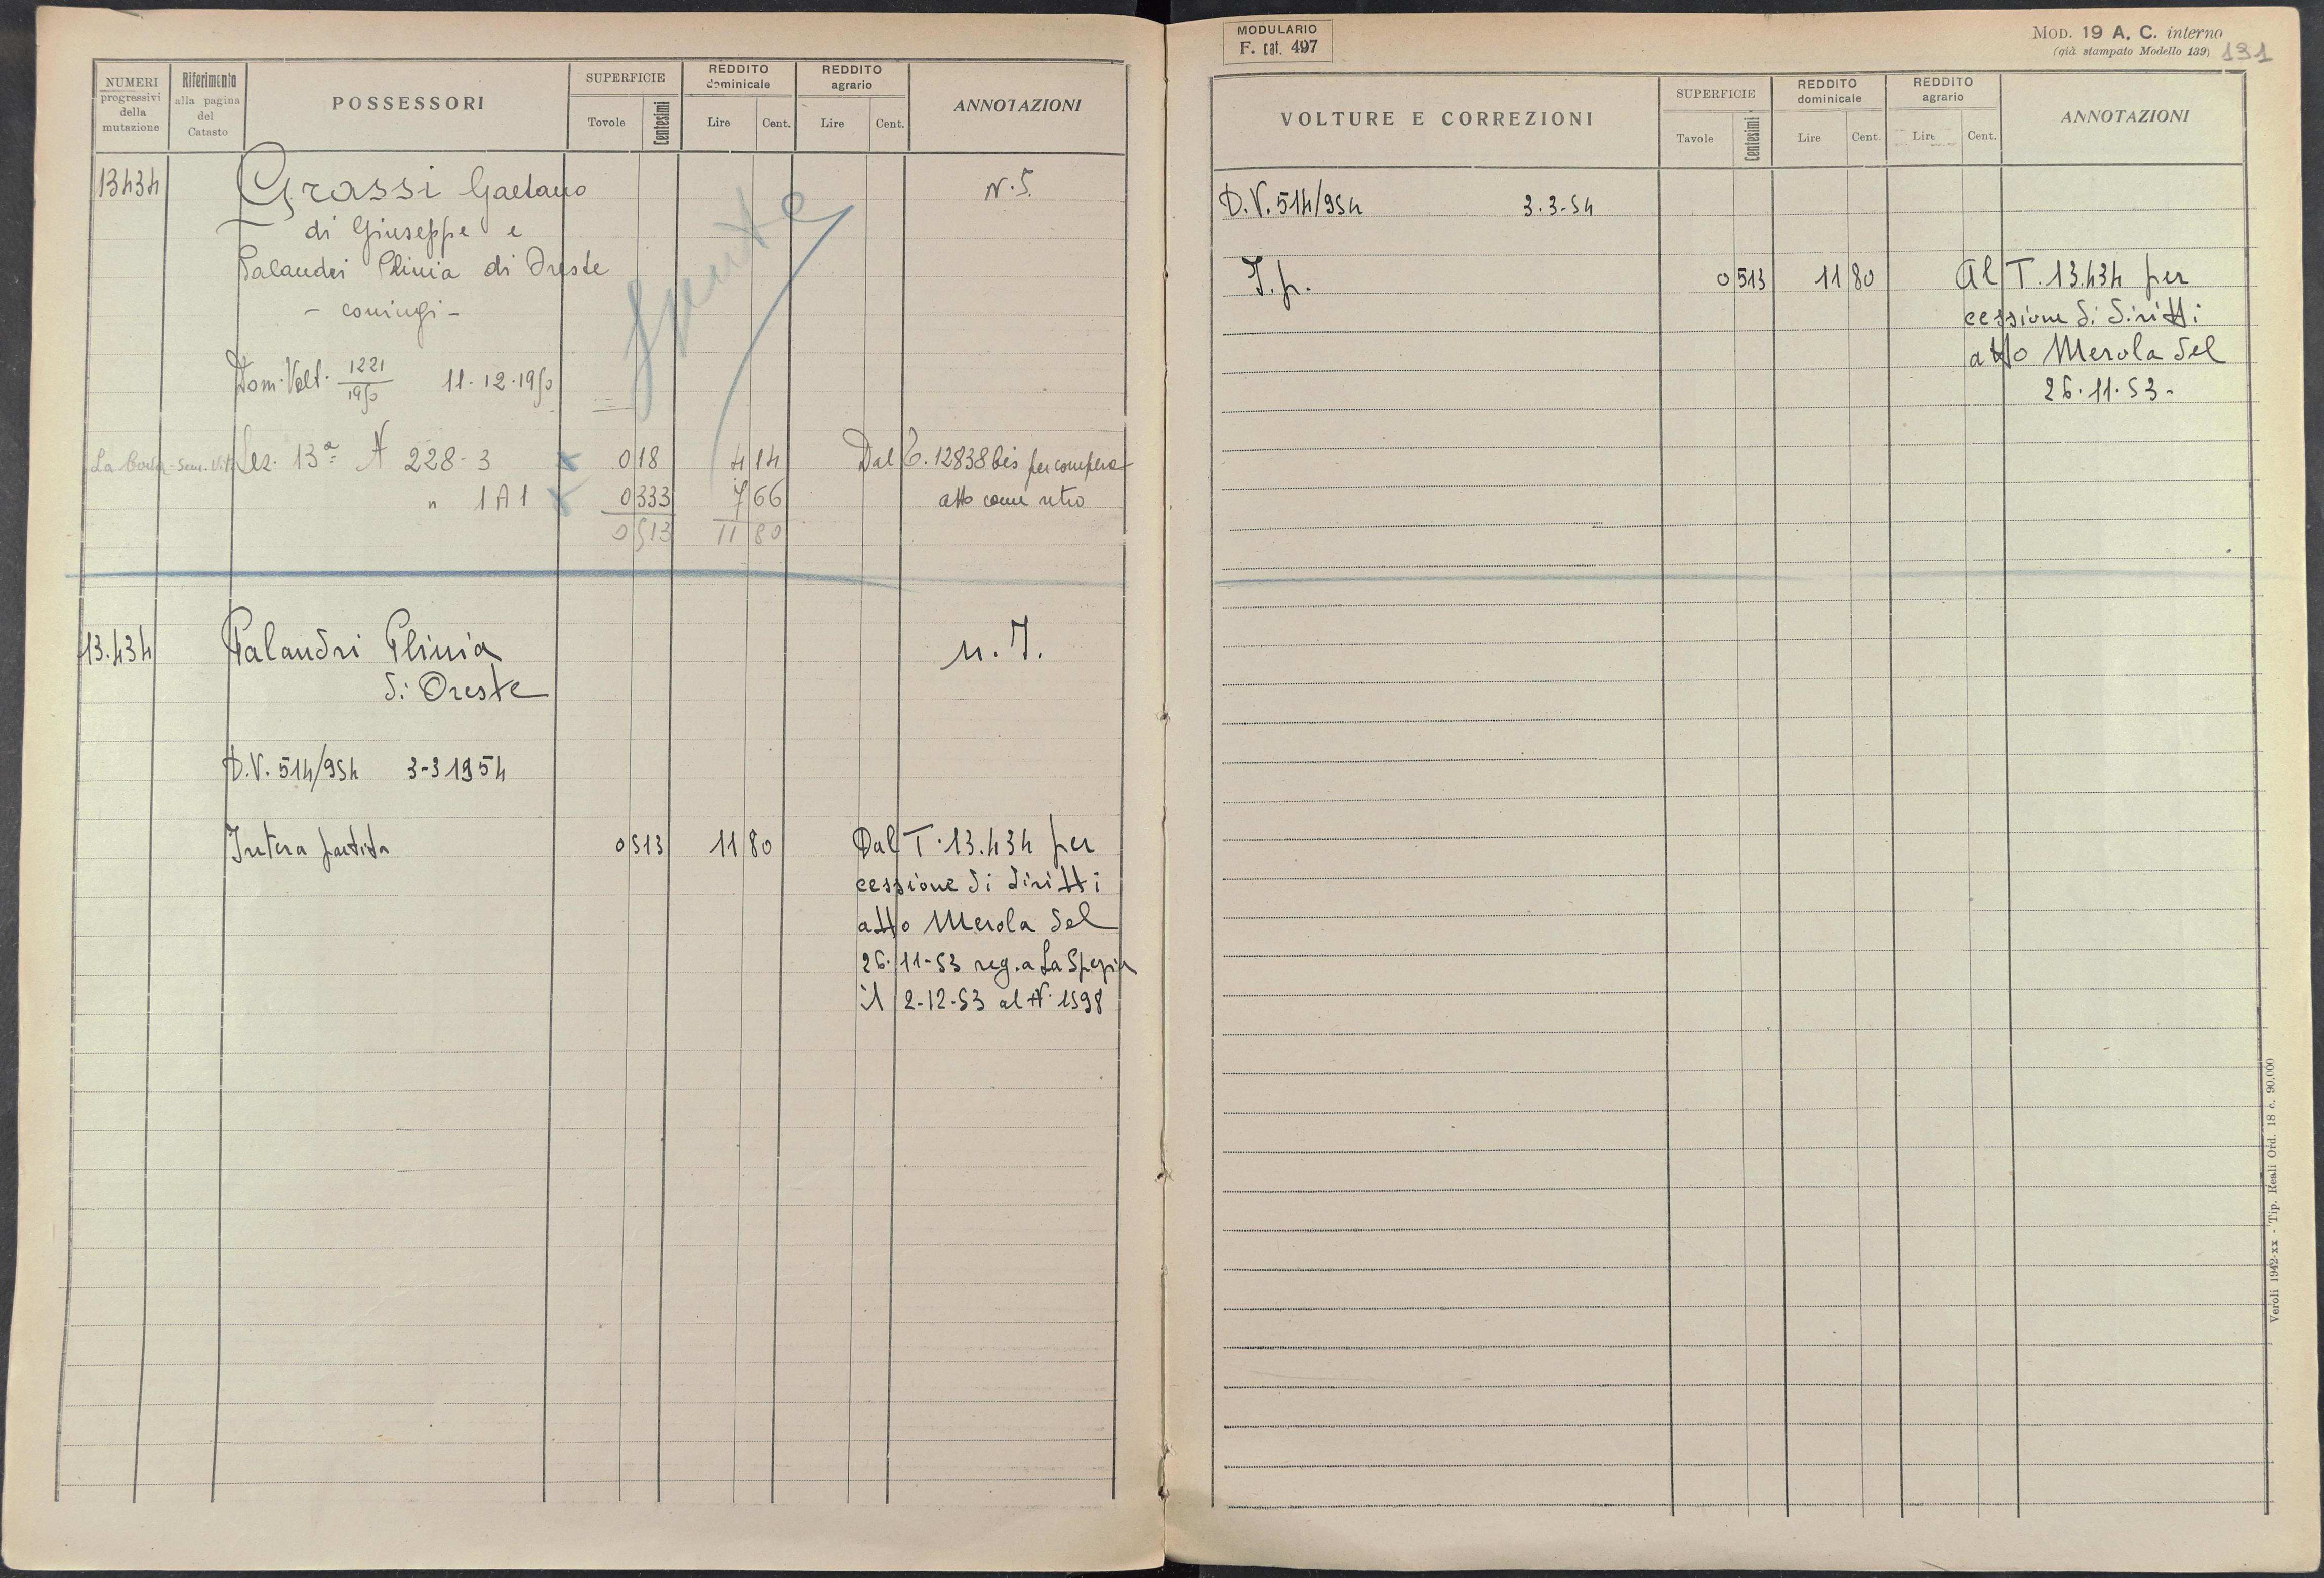 NUMERI progressivi della mutazione
Riferimento alla pagina del Catasto
POSSESSORI
SUPERFICIE
Tavole Centesimi
REDDITO dominicale
Lire Cent.
REDDITO agrario
Lire Cent.
ANNOTAZIONI
13434 Grassi Gaetano N. 5.
di Giuseppe e
Palandri Plinia di Oreste
- coniugi -
Spenta
Dom. Volt. 1221/1950 11-12-1950
Sez. 13a A 228-3 0 18 4 14 Dal T. 12838 bis per compera
" 1A1 0 333 7 66 atto come retro
0 513 11 80
13.434 Palandri Plinia n. 7.
di Oreste
D.V. 514/954 3-3 1954
Intera partita 0 513 11 80 Dal T. 13.434 per
cessione di diritti
atto Merola del
26-11-53 reg. a La Spezia
il 2-12-53 al N. 1598
MODULARIO
F. cat. 497
MOD. 19 A. C. interno
(già stampato Modello 139)
131
VOLTURE E CORREZIONI
SUPERFICIE
Tavole Centesimi
REDDITO dominicale
Lire Cent.
REDDITO agrario
Lire Cent.
ANNOTAZIONI
D.V. 514/954 3.3-54
I.p. 0 513 11 80 Al T. 13.434 per
cessione di diritti
atto Merola del
26.11.53-
Veroli 1942-xx - Tip. Reali Ord. 18 c. 90.000